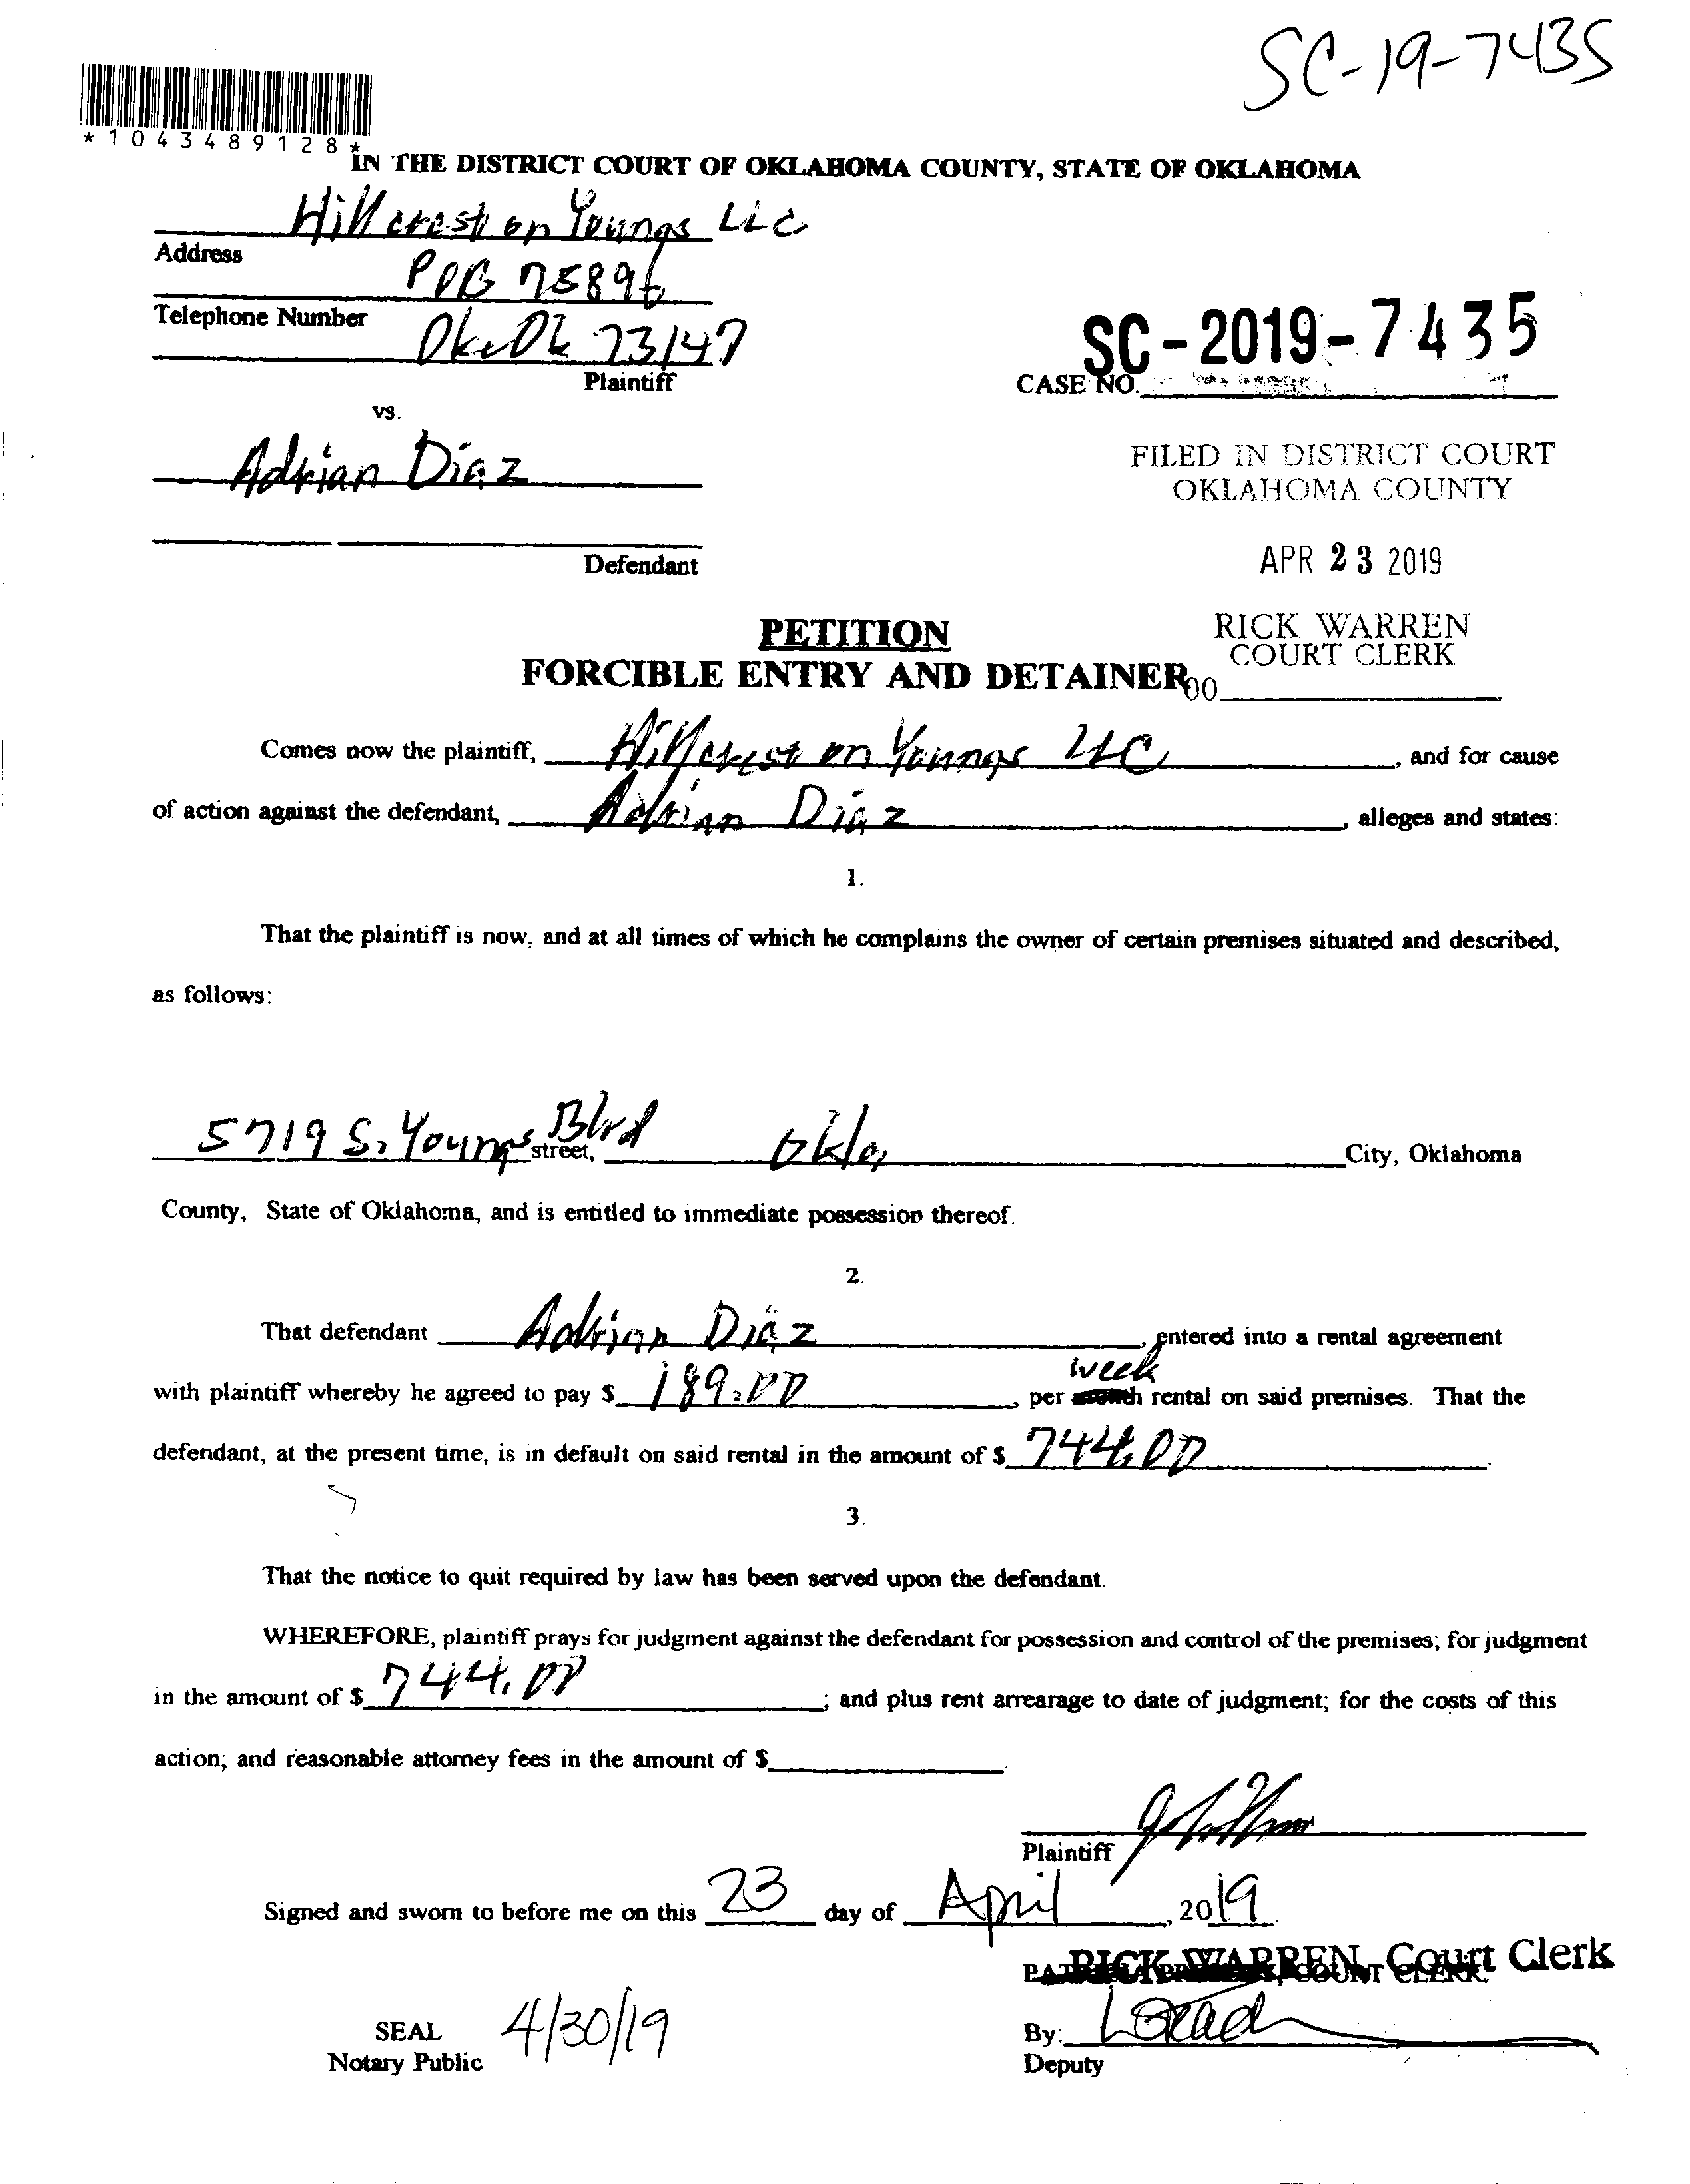 SC-19-7435
*1043489128*
IN THE DISTRICT COURT OF OKLAHOMA COUNTY, STATE OF OKLAHOMA
Hillcrest on Youngs LLC
Address
POB 75896
Telephone Number
Okc Ok 73147
Plaintiff
SC-2019-7435
CASE NO.
vs.
Adrian Diaz
FILED IN DISTRICT COURT
OKLAHOMA COUNTY
Defendant
APR 23 2019
PETITION
RICK WARREN
COURT CLERK
FORCIBLE ENTRY AND DETAINER
Comes now the plaintiff, Hillcrest on Youngs LLC, and for cause
of action against the defendant, Adrian Diaz, alleges and states:
1.
That the plaintiff is now, and at all times of which he complains the owner of certain premises situated and described,
as follows:
5719 S. Youngs Blvd street, Okla City, Oklahoma
County, State of Oklahoma, and is entitled to immediate possession thereof.
2.
That defendant Adrian Diaz, entered into a rental agreement
with plaintiff whereby he agreed to pay $ 189.00, per week rental on said premises. That the
defendant, at the present time, is in default on said rental in the amount of $ 744.00.
3.
That the notice to quit required by law has been served upon the defendant.
WHEREFORE, plaintiff prays for judgment against the defendant for possession and control of the premises; for judgment
in the amount of $ 744.00; and plus rent arrearage to date of judgment; for the costs of this
action; and reasonable attorney fees in the amount of $
Plaintiff
Signed and sworn to before me on this 23 day of April, 2019
RICK WARREN, Court Clerk
SEAL 4/30/19
By:
Notary Public
Deputy